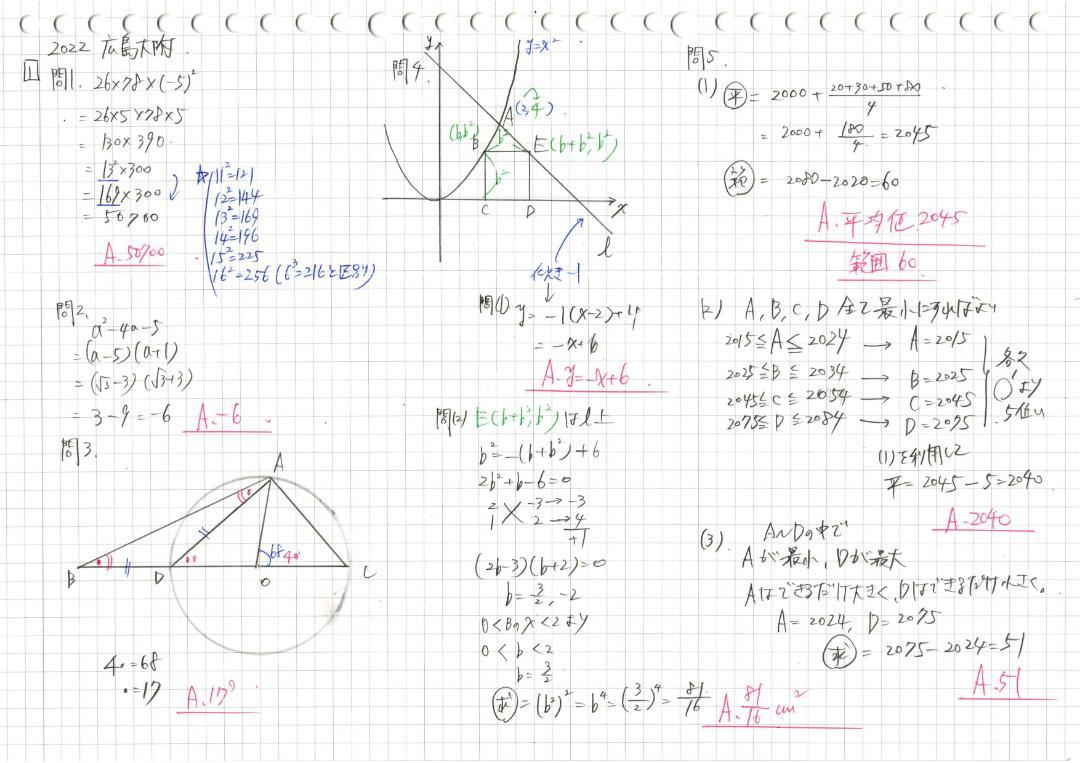 2022 広島大附
1
問1. 26×78×(-5)²
= 26×5×78×5
= 130×390
= 13²×300
= 169×300
= 50700
A. 50700
☆ 11²=121
12²=144
13²=169
14²=196
15²=225
16²=256 (6³=216と区別)
問2.
a²-4a-5
= (a-5)(a+1)
= (√3-3)(√3+3)
= 3-9 = -6
A. -6
問3.
A
B
D
O
C
68
4•
4• = 68
• = 17
A. 17°
問4.
y
y=x²
A (2,4)
(b,b²)
B
b²
E(b+b²,b²)
b²
C
D
x
l
傾き-1
問(1)
y = -1(x-2)+4
= -x+6
A. y=-x+6
問(2) E(b+b²,b²)はl上
b² = -(b+b²)+6
2b²+b-6=0
2 -3→-3
1 2→4
+1
(2b-3)(b+2)=0
b = 3/2, -2
0<Bのx<2より
0<b<2
b = 3/2
求 = (b²)² = b⁴ = (3/2)⁴ = 81/16
A. 81/16 cm²
問5.
(1) 平 = 2000 + (20+30+50+80)/4
= 2000 + 180/4 = 2045
範 = 2080-2020=60
A. 平均値 2045
範囲 60
(2) A,B,C,D 全て最小にすればよい
2015≦A≦2024 → A=2015
2025≦B≦2034 → B=2025
2045≦C≦2054 → C=2045
2075≦D≦2084 → D=2075
各々
より
(1)を利用して
平= 2045-5=2040
A. 2040
(3). A~Dの中で
Aが最小、Dが最大
Aはできるだけ大きく、Dはできるだけ小さく。
A=2024, D=2075
求 = 2075-2024=51
A. 51